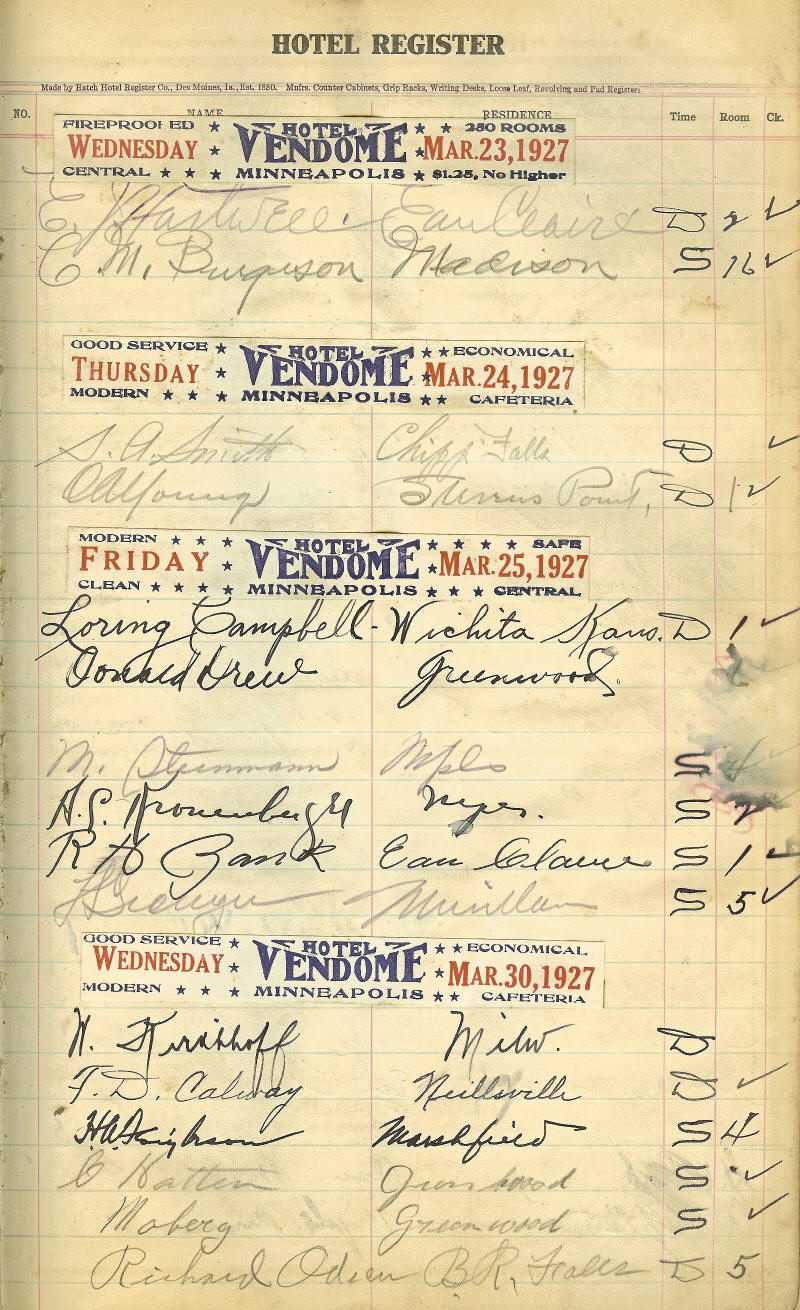 HOTEL REGISTER
Made by Hatch Hotel Register Co., Des Moines, Ia., Est. 1880. Mnfrs. Counter Cabinets, Grip Racks, Writing Desks, Loose Leaf, Revolving and Pad Registers
NO. NAME RESIDENCE Time Room Ck.
FIREPROOFED ★ HOTEL ★ ★ 250 ROOMS
WEDNESDAY ★ VENDOME ★ MAR. 23, 1927
CENTRAL ★ ★ ★ MINNEAPOLIS ★ $1.25, No Higher
E. J. Hartwell Eau Claire D 2 ✓
C. M. Burgeson Madison S 16 ✓
GOOD SERVICE ★ HOTEL ★ ★ ECONOMICAL
THURSDAY ★ VENDOME ★ MAR. 24, 1927
MODERN ★ ★ ★ MINNEAPOLIS ★ ★ CAFETERIA
S. A. Smith Chipp Falls D ✓
Young Stevens Point, D 1 ✓
MODERN ★ ★ ★ HOTEL ★ ★ ★ ★ SAFE
FRIDAY ★ VENDOME ★ MAR. 25, 1927
CLEAN ★ ★ ★ ★ MINNEAPOLIS ★ ★ ★ CENTRAL
Loring Campbell - Wichita Kans. D 1 ✓
Donald Drew Greenwood
M. Steinmann Mpls S 4
Kronenberger S 7
R H Bank Eau Claire S 1 ✓
S 5 ✓
GOOD SERVICE ★ HOTEL ★ ★ ECONOMICAL
WEDNESDAY ★ VENDOME ★ MAR. 30, 1927
MODERN ★ ★ ★ MINNEAPOLIS ★ ★ CAFETERIA
W. Kirchhoff Milw. D
F. D. Calway Neillsville D ✓
Marshfield S 4
C Hatten Greenwood S ✓
Moberg Greenwood S ✓
Richard Odeen B. R. Falls D 5